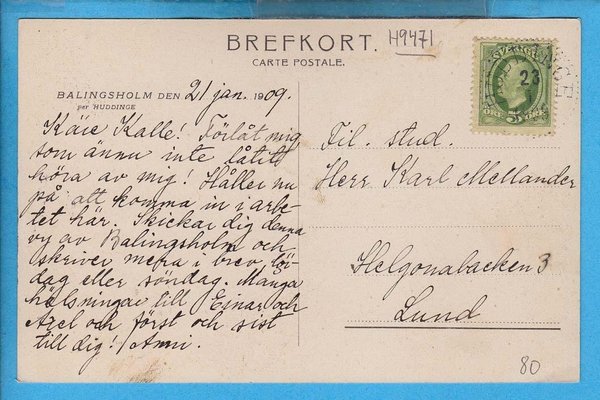 BREFKORT.
CARTE POSTALE.
H9471
SVERIGE
5 ÖRE 5 ÖRE
23
BALINGSHOLM DEN 21 jan. 1909.
per HUDDINGE
Käre Kalle! Förlåt mig
som ännu inte låtit
höra av mig! Håller nu
på att komma in i arbe-
tet här. Skickar dig denna
vy av Balingsholm och
skriver mera i brev lör-
dag eller söndag. Många
hälsningar till Einar och
Axel och först och sist
till dig! / Anni.
Fil. stud.
Herr Karl Mellander
Helgonabacken 3
Lund
80